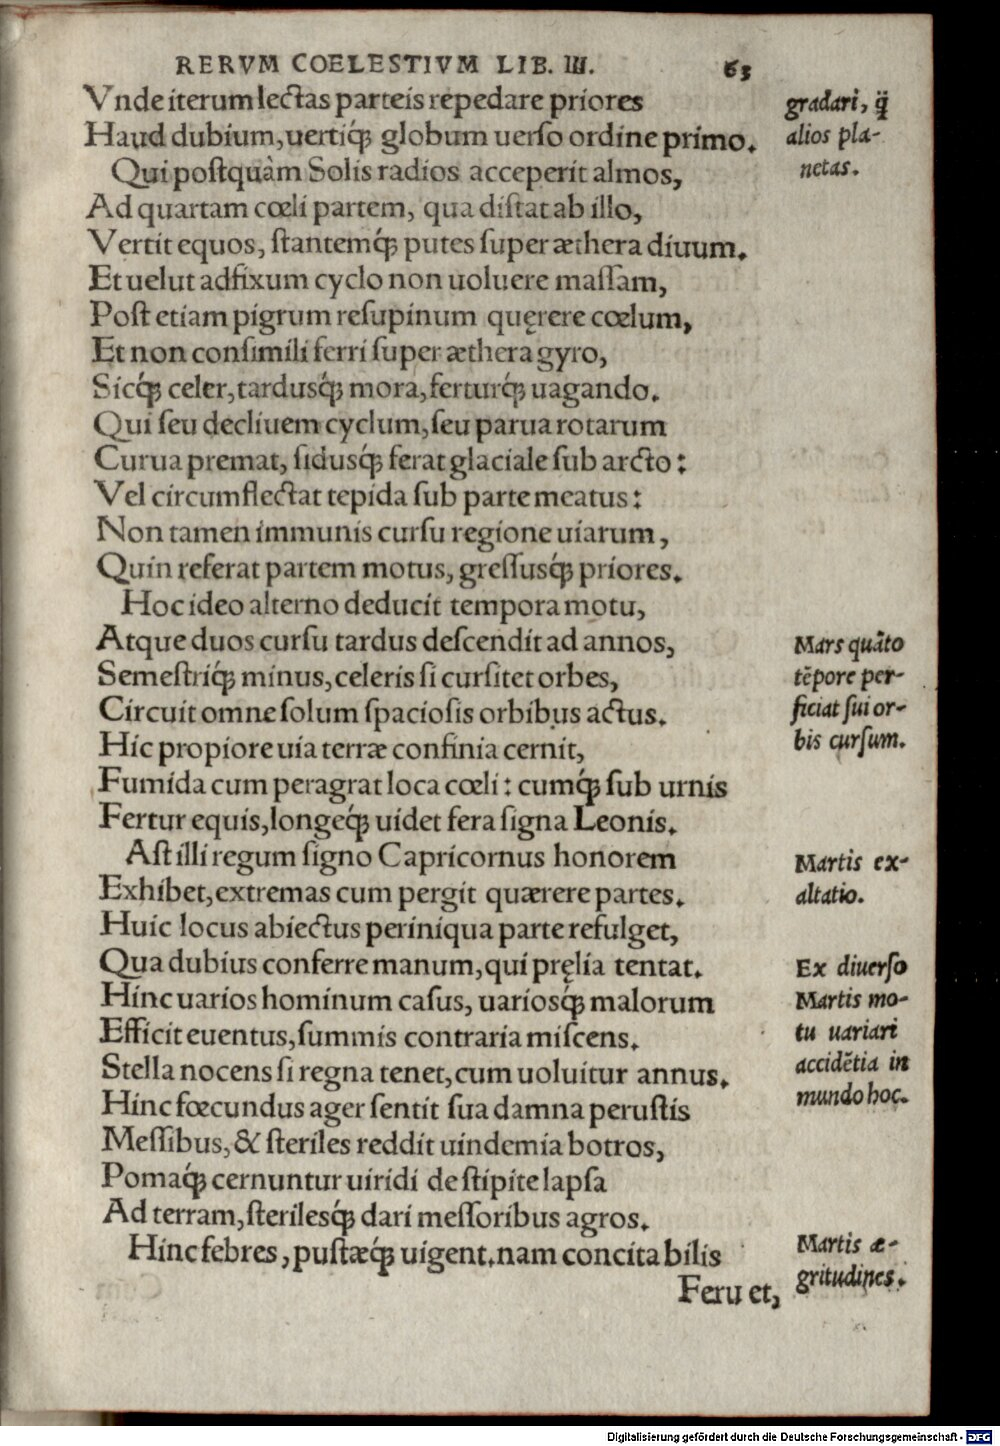 RERVM COELESTIVM LIB. III. 63
Vnde iterum lectas parteis repedare priores
Haud dubium, uertiq́; globum uerſo ordine primo.
Qui poſtquàm Solis radios acceperit almos,
Ad quartam cœli partem, qua diſtat ab illo,
Vertit equos, ſtantemq́; putes ſuper æthera diuum.
Et uelut adfixum cyclo non uoluere maſſam,
Poſt etiam pigrum reſupinum quęrere cœlum,
Et non conſimili ferri ſuper æthera gyro,
Sicq́; celer, tardusq́; mora, ferturq́; uagando.
Qui ſeu decliuem cyclum, ſeu parua rotarum
Curua premat, ſidusq́; ferat glaciale ſub arcto:
Vel circumflectat tepida ſub parte meatus:
Non tamen immunis curſu regione uiarum,
Quin referat partem motus, greſſusq́; priores.
Hoc ideo alterno deducit tempora motu,
Atque duos curſu tardus deſcendit ad annos,
Semeſtriq́; minus, celeris ſi curſitet orbes,
Circuit omne ſolum ſpacioſis orbibus actus.
Hic propiore uia terræ confinia cernit,
Fumida cum peragrat loca cœli: cumq́; ſub urnis
Fertur equis, longeq́; uidet fera ſigna Leonis.
Aſt illi regum ſigno Capricornus honorem
Exhibet, extremas cum pergit quærere partes.
Huic locus abiectus per iniqua parte refulget,
Qua dubius conferre manum, qui pręlia tentat.
Hinc uarios hominum caſus, uariosq́; malorum
Efficit euentus, ſummis contraria miſcens.
Stella nocens ſi regna tenet, cum uoluitur annus.
Hinc fœcundus ager ſentit ſua damna peruſtis
Meſſibus, & ſteriles reddit uindemia botros,
Pomaq́; cernuntur uiridi de ſtipite lapſa
Ad terram, ſterilesq́; dari meſſoribus agros.
Hinc febres, puſtæq́; uigent. nam concita bilis
Feru et,
gradari, q̈
alios pla-
netas.
Mars quãto
tẽpore per-
ficiat ſui or-
bis curſum.
Martis ex-
altatio.
Ex diuerſo
Martis mo-
tu uariari
accidẽtia in
mundo hoc.
Martis æ-
gritudines.
Digitalisierung gefördert durch die Deutsche Forschungsgemeinschaft - DFG